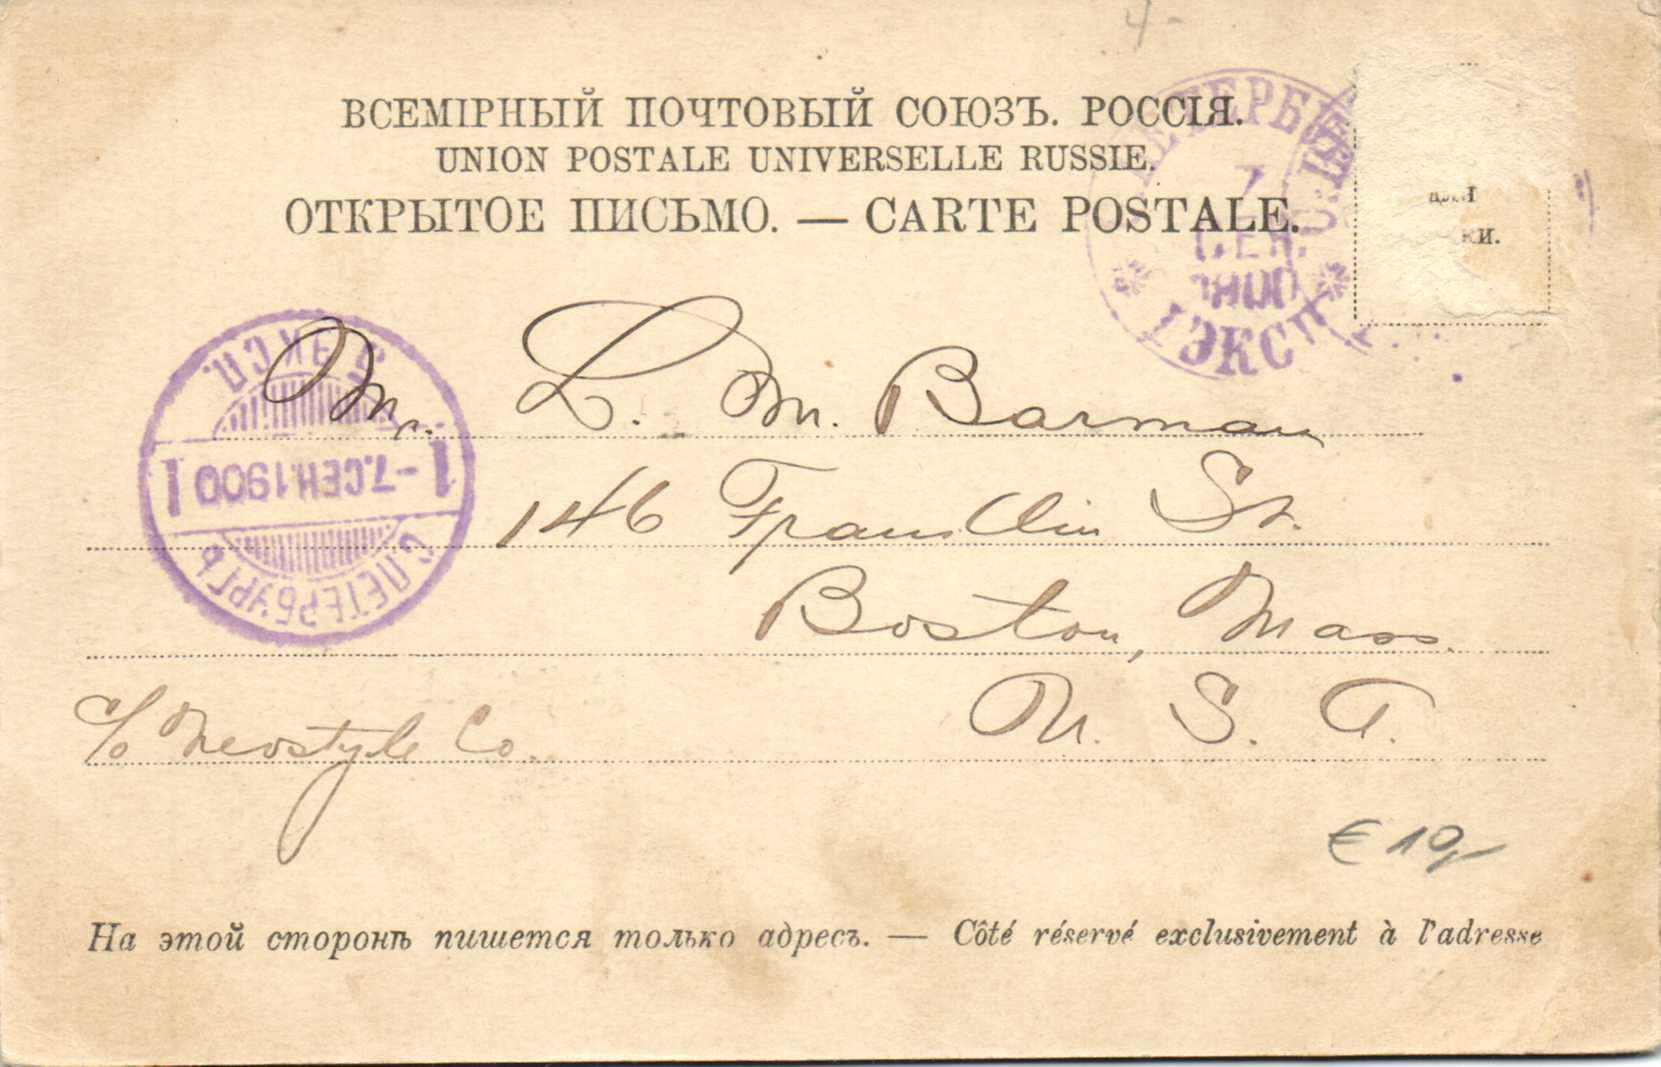 4-
ВСЕМІРНЫЙ ПОЧТОВЫЙ СОЮЗЪ. РОССІЯ.
UNION POSTALE UNIVERSELLE RUSSIE.
ОТКРЫТОЕ ПИСЬМО. — CARTE POSTALE.
для
ки.
ПЕТЕРБ
7
СЕН.
1900
1 ЭКСП
ЭКСП.
1 -7.СЕН.1900 1
С.ПЕТЕРБУРГЪ
Mr. L. M. Barman
146 Franklin St.
Boston, Mass.
U. S. A.
c/o Neostyle Co.
€ 10,-
На этой сторонѣ пишется только адресъ. — Côté réservé exclusivement à l'adresse